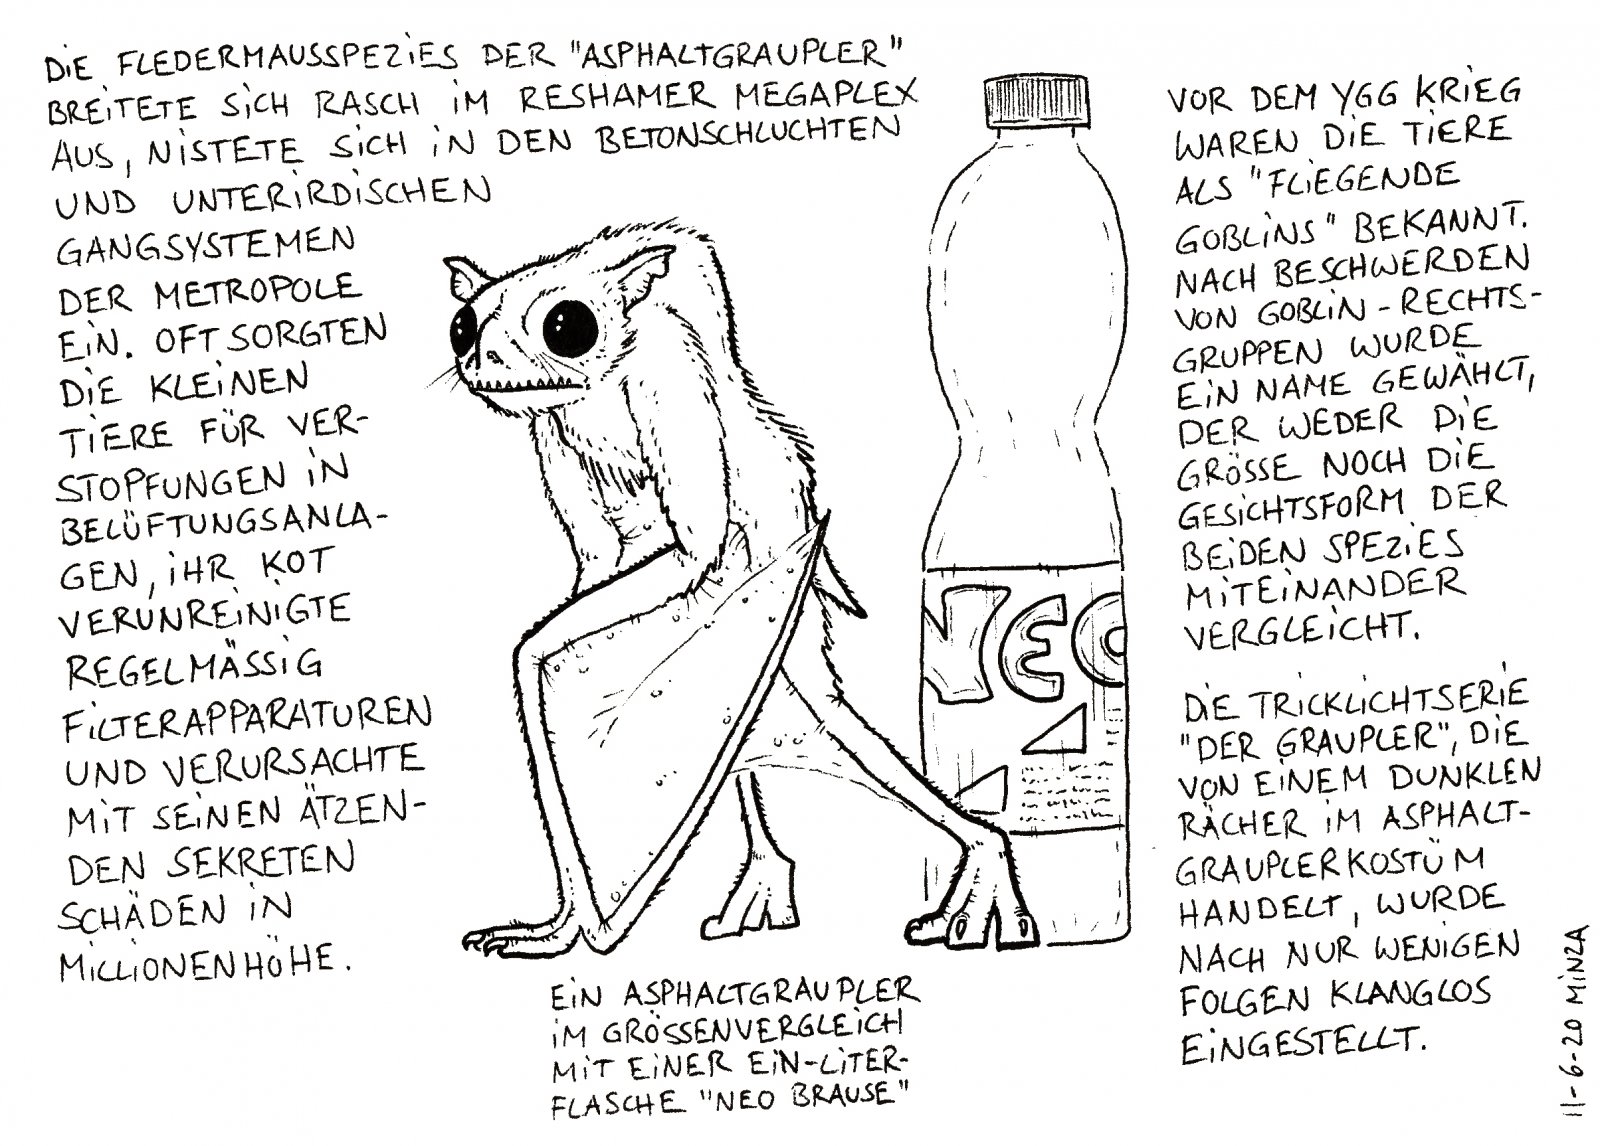 DIE FLEDERMAUSSPEZIES DER "ASPHALTGRAUPLER"
BREITETE SICH RASCH IM RESHAMER MEGAPLEX
AUS, NISTETE SICH IN DEN BETONSCHLUCHTEN
UND UNTERIRDISCHEN
GANGSYSTEMEN
DER METROPOLE
EIN. OFT SORGTEN
DIE KLEINEN
TIERE FÜR VER-
STOPFUNGEN IN
BELÜFTUNGSANLA-
GEN, IHR KOT
VERUNREINIGTE
REGELMÄSSIG
FILTERAPPARATUREN
UND VERURSACHTE
MIT SEINEN ÄTZEN-
DEN SEKRETEN
SCHÄDEN IN
MILLIONENHÖHE.
NEO
EIN ASPHALTGRAUPLER
IM GRÖSSENVERGLEICH
MIT EINER EIN-LITER-
FLASCHE "NEO BRAUSE"
VOR DEM YGG KRIEG
WAREN DIE TIERE
ALS "FLIEGENDE
GOBLINS" BEKANNT.
NACH BESCHWERDEN
VON GOBLIN-RECHTS-
GRUPPEN WURDE
EIN NAME GEWÄHLT,
DER WEDER DIE
GRÖSSE NOCH DIE
GESICHTSFORM DER
BEIDEN SPEZIES
MITEINANDER
VERGLEICHT.
DIE TRICKLICHTSERIE
"DER GRAUPLER", DIE
VON EINEM DUNKLEN
RÄCHER IM ASPHALT-
GRAUPLERKOSTÜM
HANDELT, WURDE
NACH NUR WENIGEN
FOLGEN KLANGLOS
EINGESTELLT.
11-6-20 MINZA